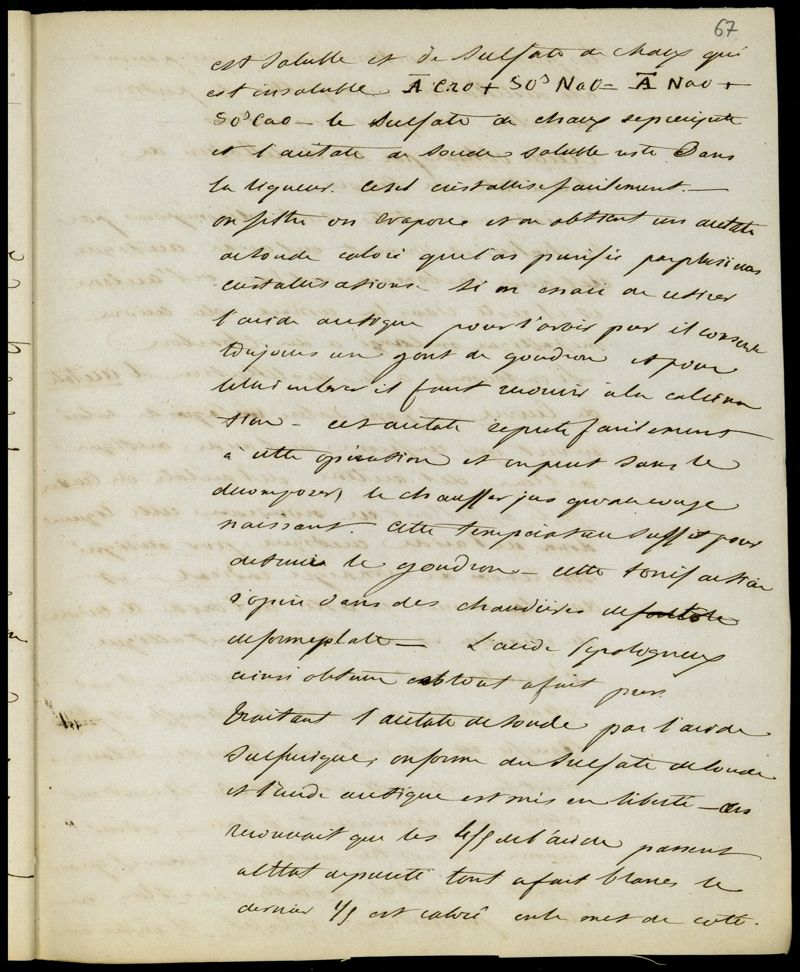 67
est soluble et de sulfate de chaux qui
est insoluble. A CaO + SO³ NaO = A NaO +
SO³ CaO — le sulfate de chaux se precipite
et l'acétate de soude soluble reste dans
la liqueur. Cesel cristallise facilement. —
on filtre on évapore et on obtient un acétate
de soude coloré que l'on purifie par plusieurs
cristallisations. Si on essaie de retirer
l'acide acétique pour l'avoir pur il conserve
toujours un gout de goudron et pour
le lui enlever il faut recourir à la calcina
tion — cet acétate resiste facilement
à cette opération et on peut sans le
decomposer, le chauffer jusqu'au rouge
naissant. Cette température suffit pour
detruire le goudron — cette torrefaction
s'opère dans des chaudières de fonte
de forme plate — L'acide pyroligneux
ainsi obtenu est tout a fait pur
traitant l'acétate de soude par l'acide
sulfurique, on forme du sulfate de soude
et l'acide acétique est mis en liberté — on
reconnait que les 4/5 de l'acide passent
à l'état de pureté tout a fait blancs le
dernier 1/5 est coloré on le met de coté.